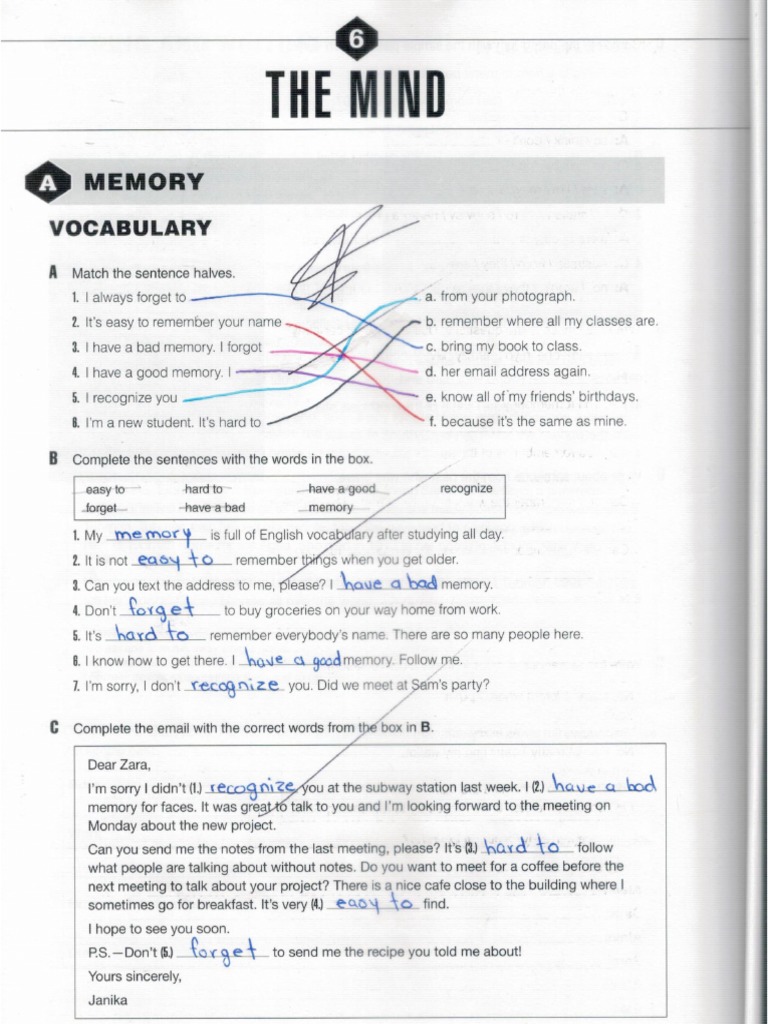 6
THE MIND
A MEMORY
VOCABULARY
A Match the sentence halves.
1. I always forget to a. from your photograph.
2. It's easy to remember your name b. remember where all my classes are.
3. I have a bad memory. I forgot c. bring my book to class.
4. I have a good memory. I d. her email address again.
5. I recognize you e. know all of my friends' birthdays.
6. I'm a new student. It's hard to f. because it's the same as mine.
B Complete the sentences with the words in the box.
easy to hard to have a good recognize
forget have a bad memory
1. My memory is full of English vocabulary after studying all day.
2. It is not easy to remember things when you get older.
3. Can you text the address to me, please? I have a bad memory.
4. Don't forget to buy groceries on your way home from work.
5. It's hard to remember everybody's name. There are so many people here.
6. I know how to get there. I have a good memory. Follow me.
7. I'm sorry, I don't recognize you. Did we meet at Sam's party?
C Complete the email with the correct words from the box in B.
Dear Zara,
I'm sorry I didn't (1.) recognize you at the subway station last week. I (2.) have a bad
memory for faces. It was great to talk to you and I'm looking forward to the meeting on
Monday about the new project.
Can you send me the notes from the last meeting, please? It's (3.) hard to follow
what people are talking about without notes. Do you want to meet for a coffee before the
next meeting to talk about your project? There is a nice cafe close to the building where I
sometimes go for breakfast. It's very (4.) easy to find.
I hope to see you soon.
P.S.—Don't (5.) forget to send me the recipe you told me about!
Yours sincerely,
Janika